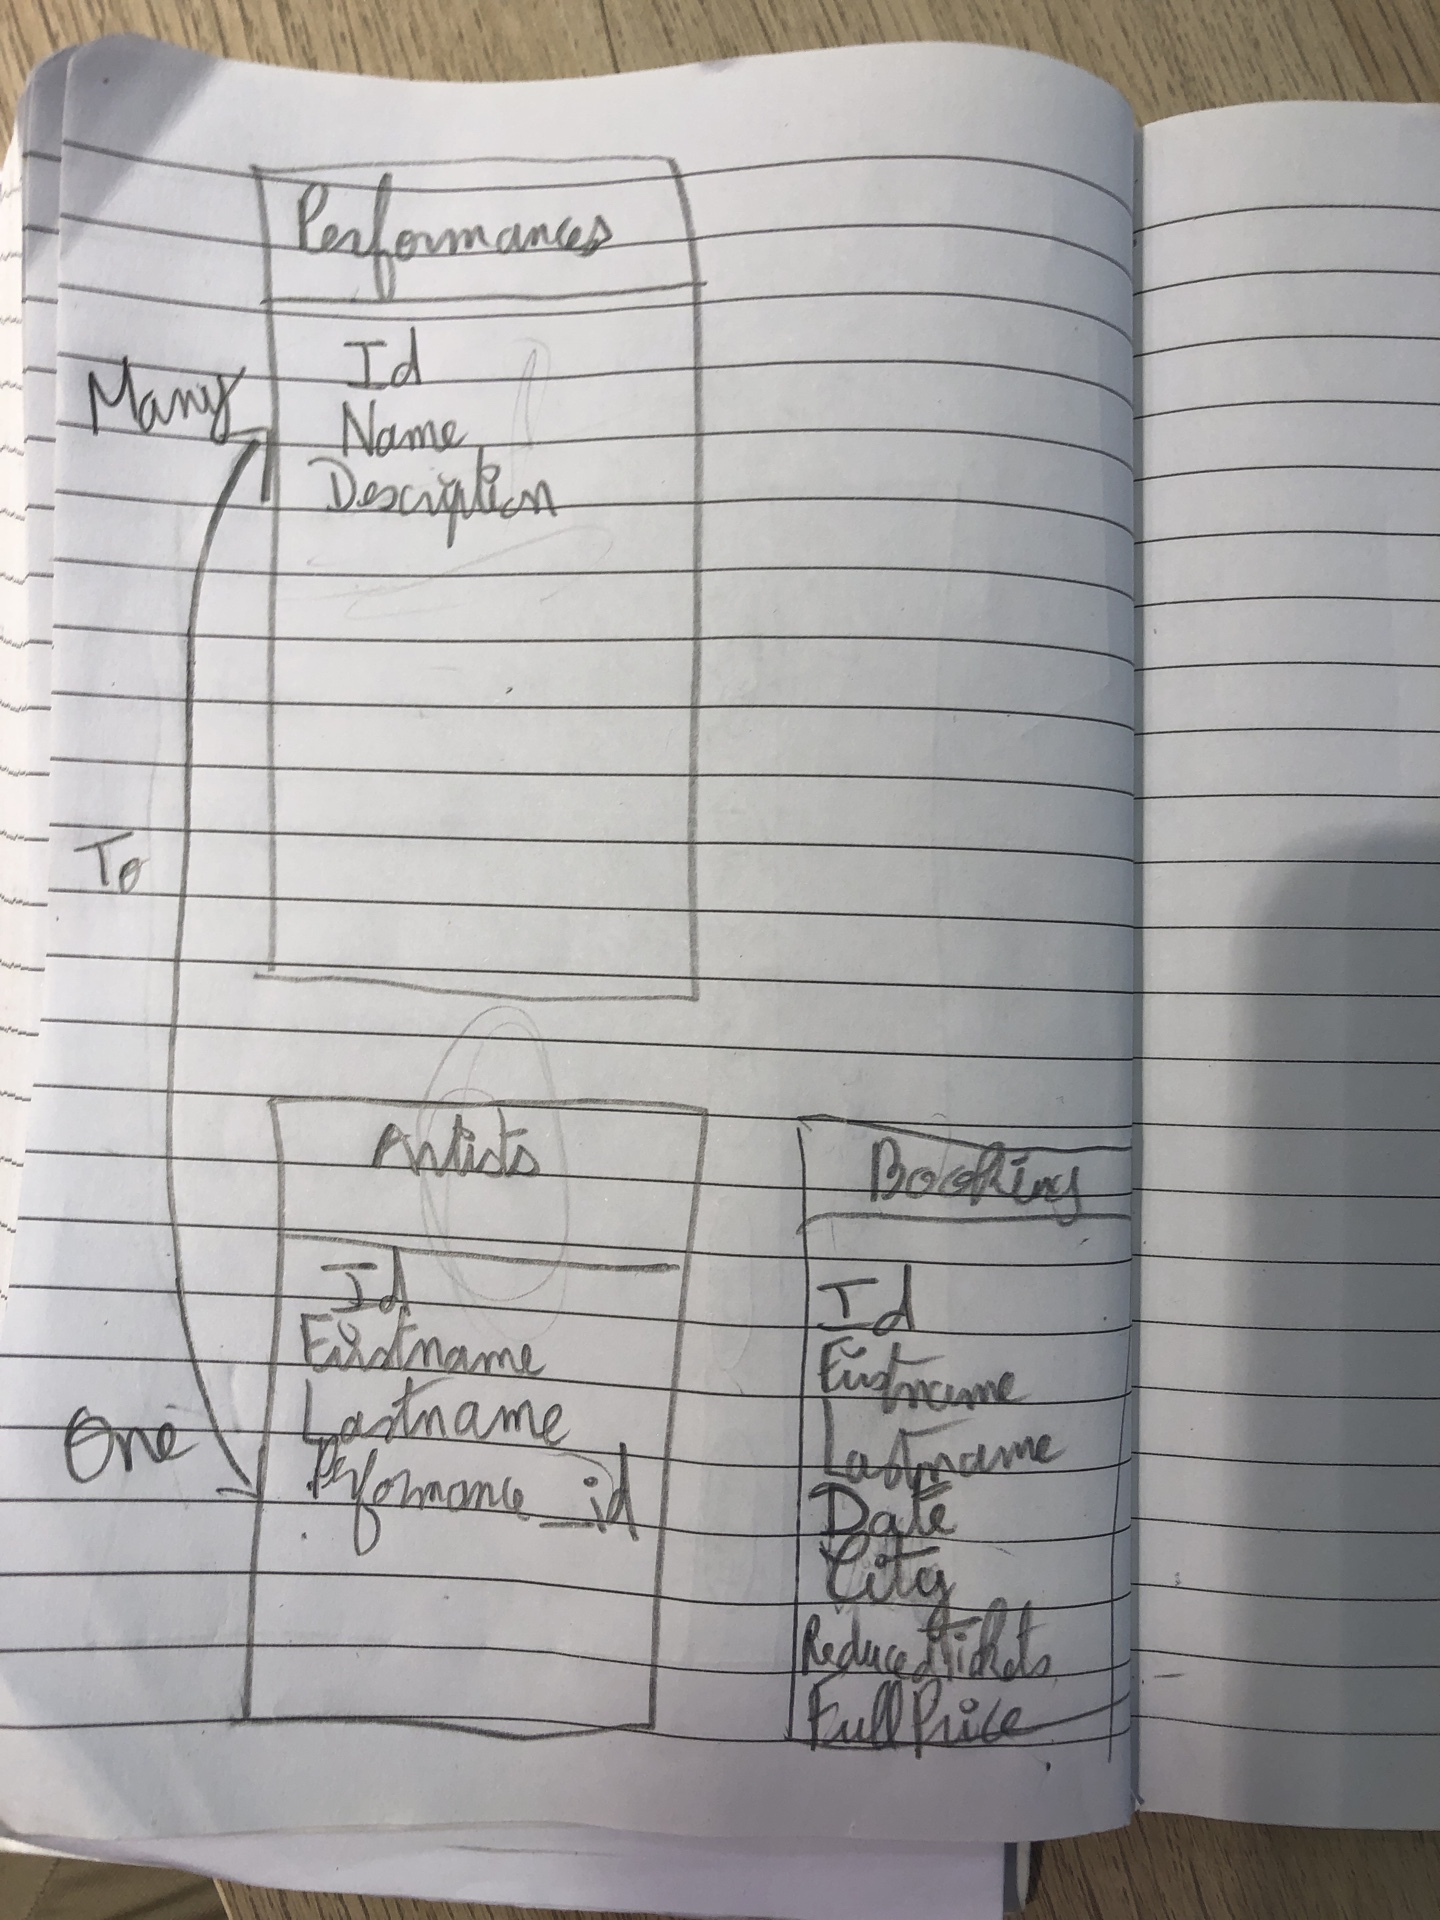 Performances
Id
Name
Description
Many
To
One
Artists
Id
Firstname
Lastname
Performance_id
Booking
Id
Firstname
Lastname
Date
City
Reduced Tickets
Full Price